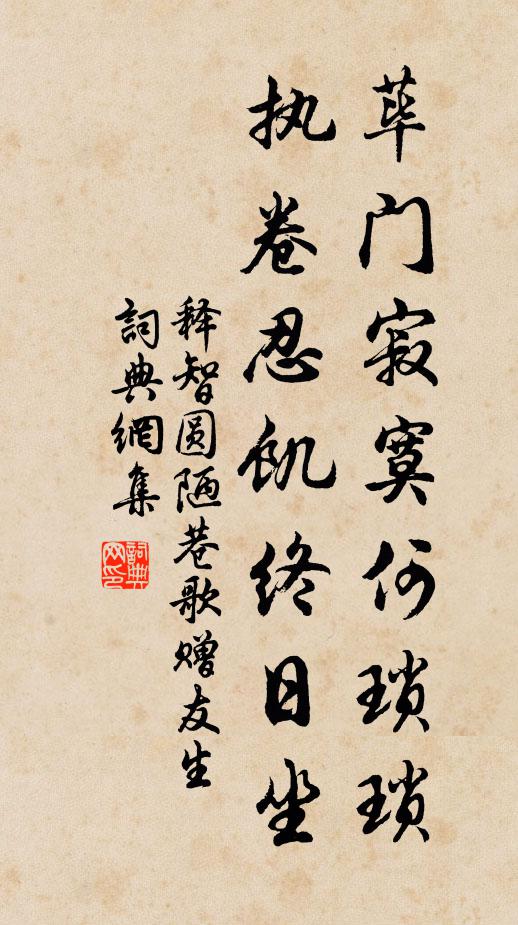 荜门寂寞何琐琐
执卷忍饥终日坐
释智圆陋巷歌赠友生
詞典網集
詞典网印